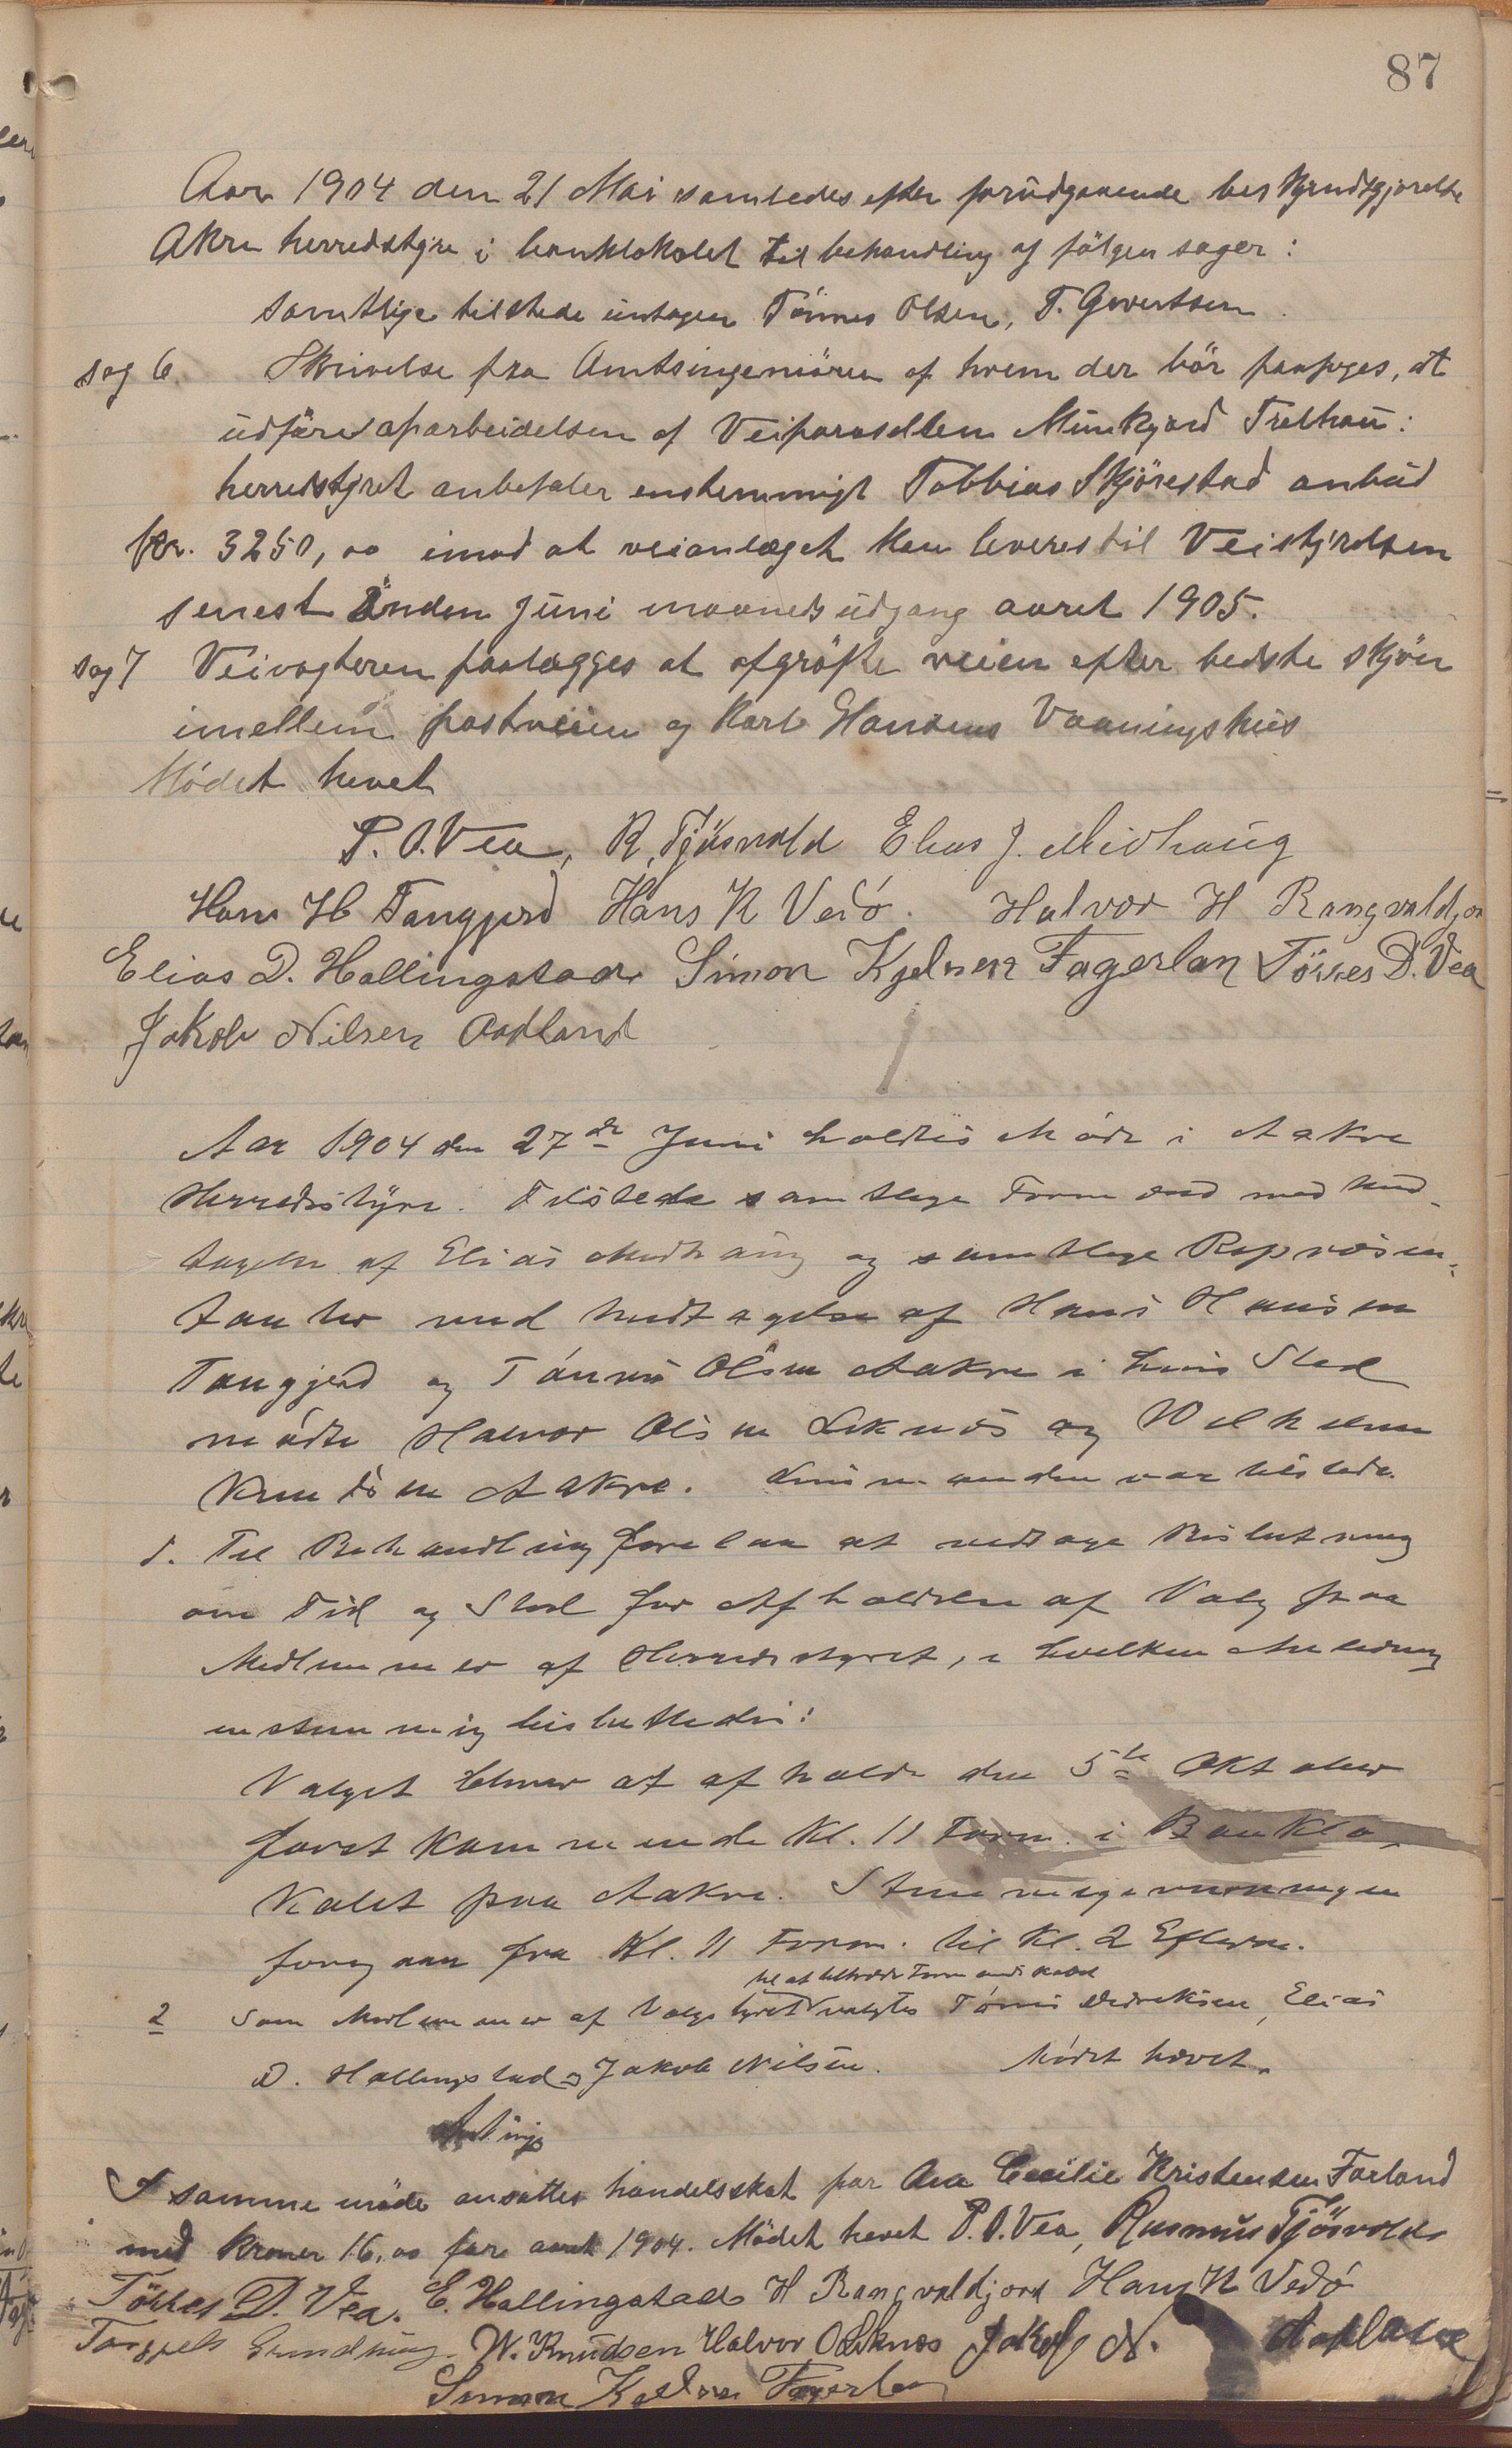 87
Aar 1904 den 21 Mai samledes efter forudgaaende beskjendtgjørelse
Akre herredstyre i banklokalet til behandling af følgen sager:
samtlige tilstede untagen Tönnes Olsen, T. Govertsen.
sag 6. Skrivelse fra Amtsingeniören af hvem der bör paasiges, at
udföre aparbeidelsen af Veiparasellen Munkjord Trelhau:
herredstyret anbefaler enstemmigt Tobbias Skjörestad anbud
kr. 3250,00 imod at veianlæget kan leveres til Veistyrelsen
senest inden Juni maaneds udgang aaret 1905.
sag 7 Veivogteren paalægges at afgröfte veien efter bedste skjön
imellem postveien og Karl Hansens Vaaningshus
Mödet hevet
P. O. Vea, R. Tjösvold Elias J. Midhaug
Hans H Tangjerd Hans K Vedö. Halvor H Rangvaldjor
Elias D. Hallingstad Simon Kjelsen Fagerlan Törres D. Vea
Jakob Nilsen Aadland
Aar 1904 den 27de Juni holdtes Möde i Aakre
Herredsstyre. Tilstede samtlige Formænd med Und-
tagelse af Elias Midhaug og samtlige Repræsen-
tanter med Undtagelse af Hans Hansen
Tangjerd og Tönnes Olsen Aakre i hvis Sted
mödte Halvor Olsen Liknes og Wilhelm
Knudsen Aakre. Lensmanden var tilstede.
1. Til Behandling forelaa at vedtage Beslutning
om Tid og Sted for Afholdelse af Valg paa
Medlemmer af Herredsstyret, i hvilken Anledning
enstemmig besluttedes:
Valget bliver at afholde den 5te Oktober
förstkommende Kl. 11 Form. i Banklo-
kalet paa Aakre. Stemmegivningen
foregaar fra Kl. 11 Form. til Kl. 2 Efterm.
til at tiltræde Formandskabet
2 Som Medlemmer af Valgstyret valgtes Törres Didriksen, Elias
D. Hallingstad og Jakob Nilsen. Mödet hævet.
I samme möde ansattes handelsskat for Ane Cecilie Kristensen Farland
med kroner 16,00 for aaret 1904. Mödet hevet P. O. Vea, Rasmus Tjösvold
Törres D. Vea. E. Hallingstad H Rangvaldjord Hans K Vedö
W. Knudsen Halvor O Liknes Jakob N. Aadland
Simon Kjelsen Fagerlan